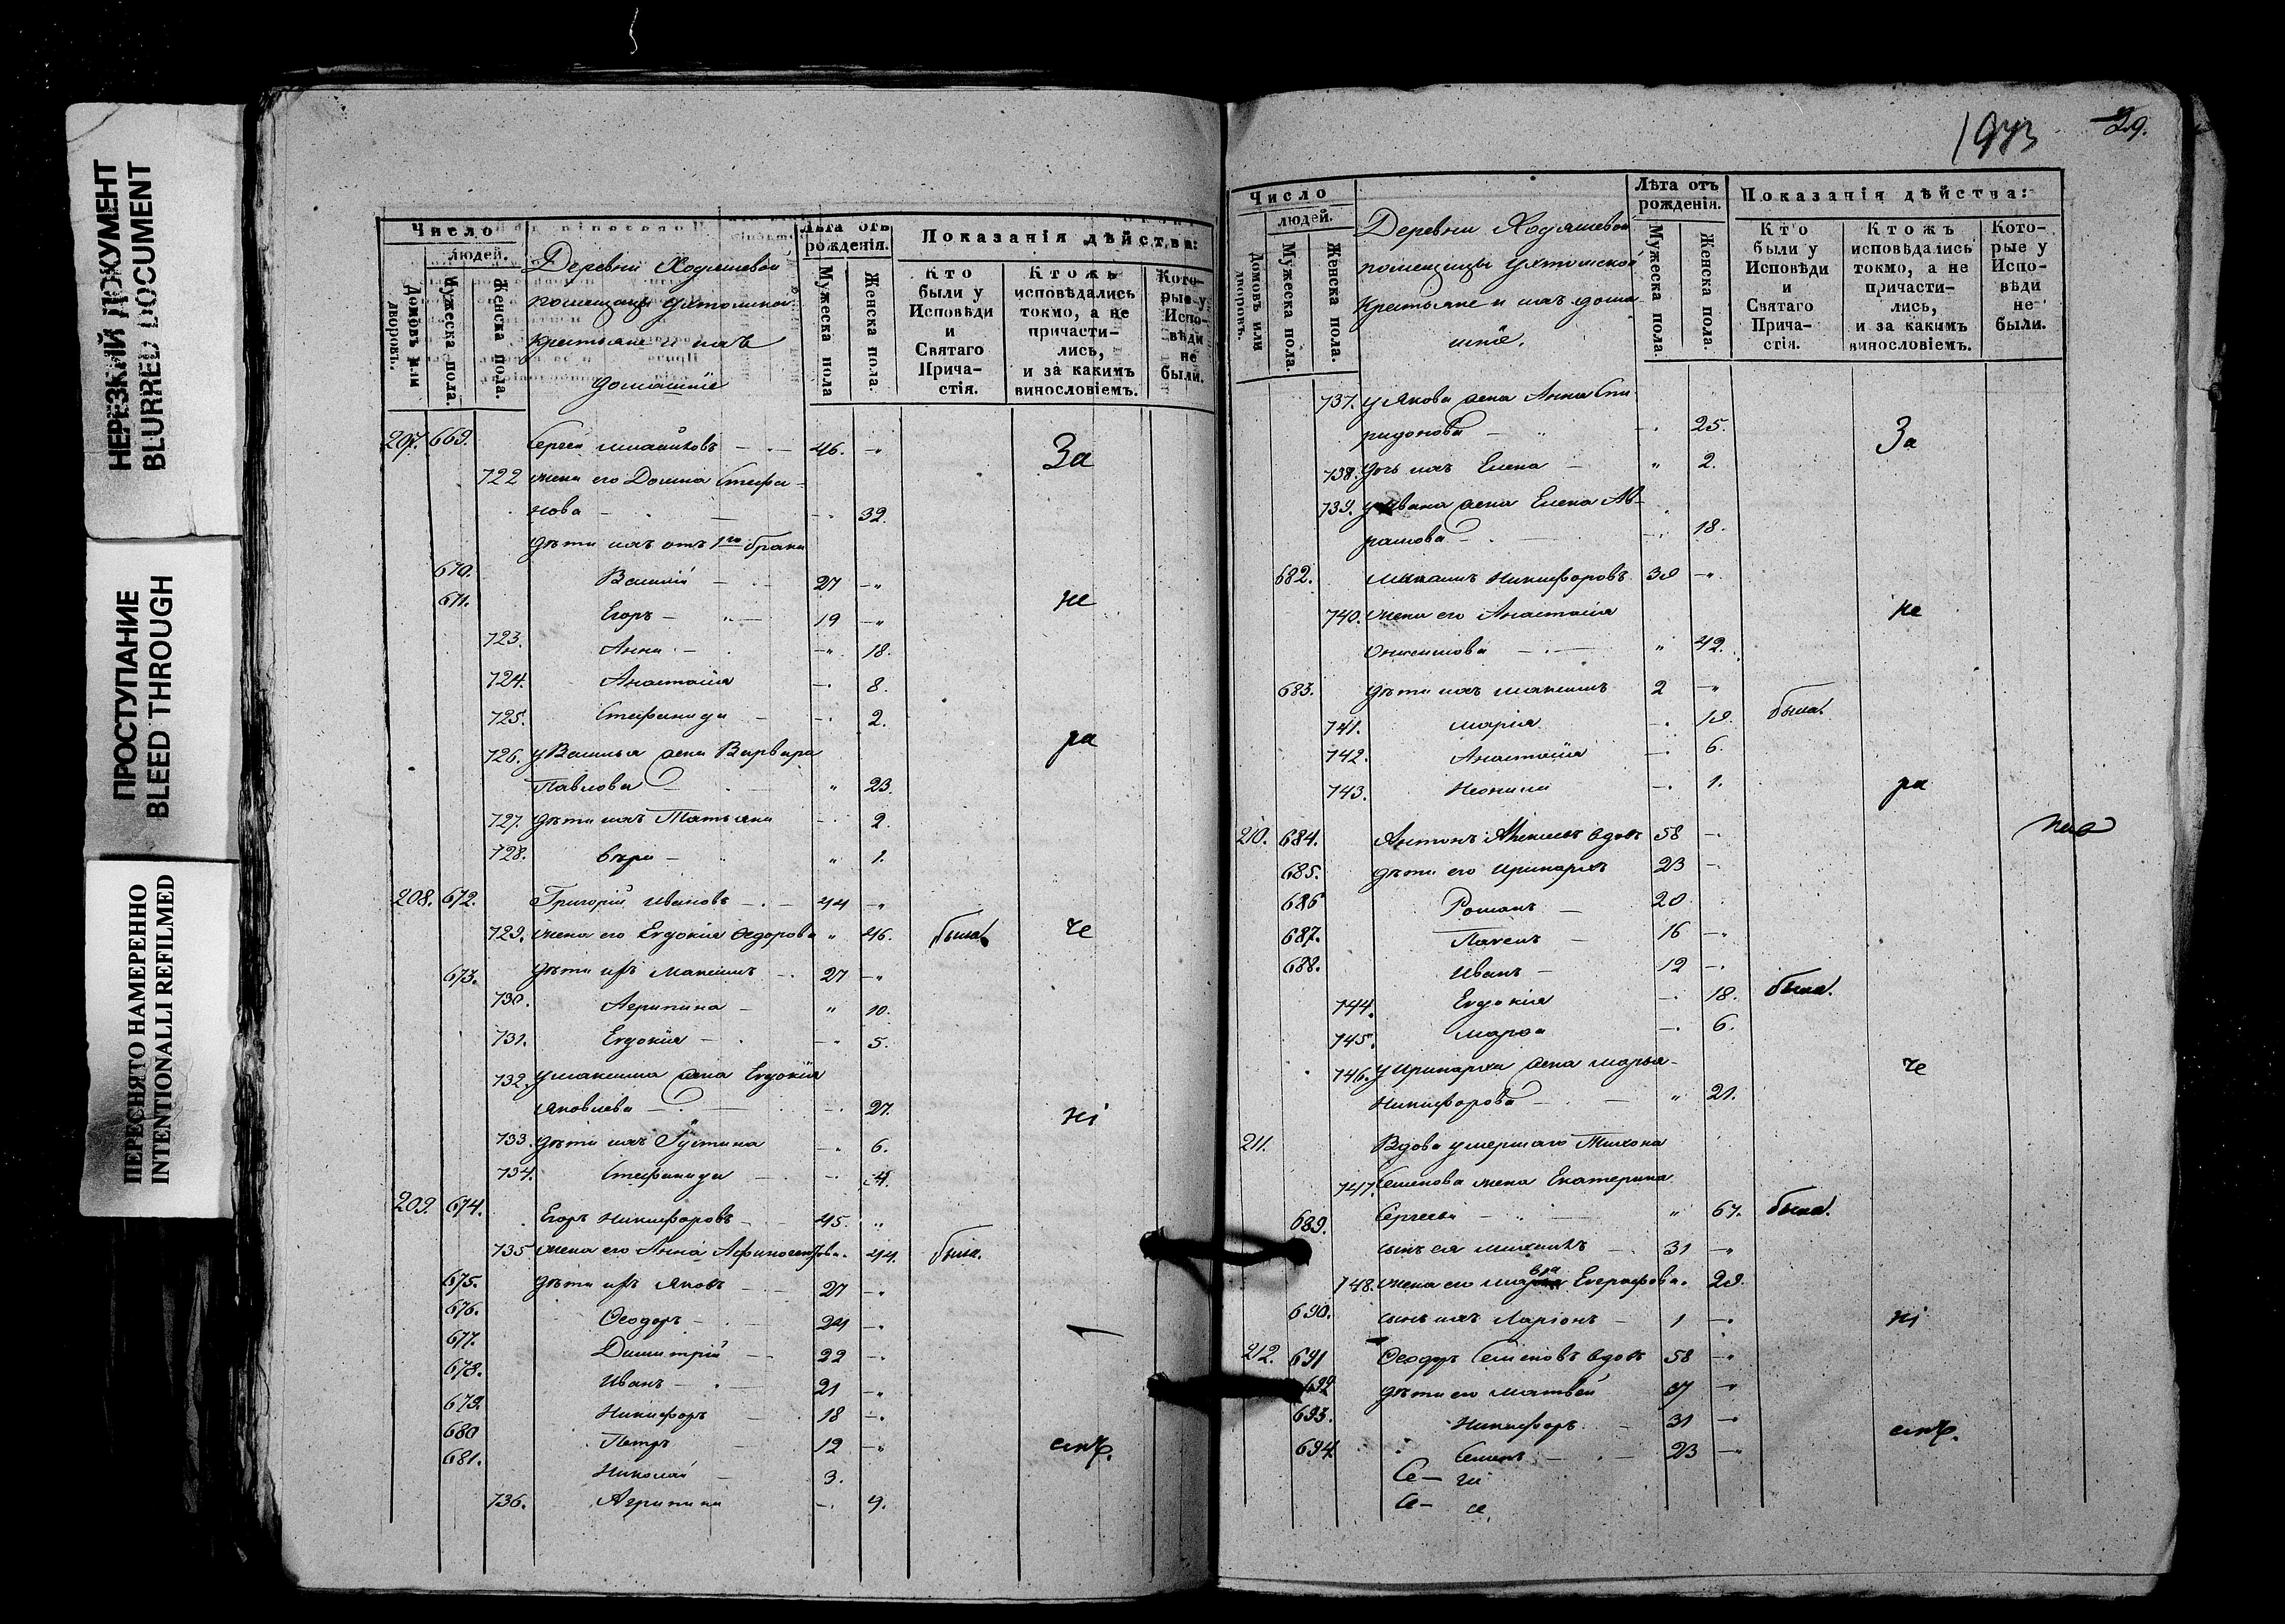 НЕРЕЗКИЙ ДОКУМЕНТ
BLURRED DOCUMENT
ПРОСТУПАНИЕ
BLEED THROUGH
ПЕРЕСНЯТО НАМЕРЕННО
INTENTIONALLI REFILMED
Число
людей.
Домовъ или дворовъ.
Мужеска пола.
Женска пола.
Деревни Ходяшевой
помещицы Ухтомской
крестьяне и ихъ
домашніе
Лѣта отъ рожденія.
Мужеска пола
Женска пола.
Показанія дѣйства:
Кто были у Исповѣди и Святаго Прича-стія.
Ктожъ исповѣдались токмо, а не причасти-лись, и за какимъ винословіемъ.
Кото-рые у Испо-вѣди не были.
207. 669. Сергей 46. За
722 жена его Домна Стефа-
нова 32.
дѣти ихъ отъ 1го брака
670. Василій 27
671. Егоръ 19 не
723. Анна 18.
724. Анастасія 8.
725. Стефанида 2.
726. у Василья жена Варвара ра
Павлова 23.
727. дѣти ихъ Татьяна 2.
728. Вѣра 1.
208. 672. Григорій Ивановъ 44
729. жена его Евдокія Ѳедорова 46. была. че
673. дѣти ихъ Максимъ 27
730. Агрипина 10.
731. Евдокія 5.
732. у Максима жена Евдокія
Яковлева 27. ні
733. дѣти ихъ Іустина 6.
734. Стефанида 4.
209. 674. Егоръ Никифоровъ 45.
735. жена его Анна Афиногенова 44. была.
675. дѣти ихъ Яковъ 27
676. Ѳеодоръ 24
677. Димитрій 22
678. Иванъ 21
679. Никифоръ 18
680 Петръ 12 емъ.
681. Николай 3.
736. Агрипина 9.
1973
29.
Число
людей.
Домовъ или дворовъ.
Мужеска пола.
Женска пола.
Деревни Ходяшевой
помещицы Ухтомской
крестьяне и ихъ дома-
шніе.
Лѣта отъ рожденія.
Мужеска пола.
Женска пола.
Показанія дѣйства:
Кто были у Исповѣди и Святаго Прича-стія.
Ктожъ исповѣдались токмо, а не причасти-лись, и за какимъ винословіемъ.
Кото-рые у Испо-вѣди не были.
737. у Якова жена Анна Спи-
ридонова 25. За
738. дочь ихъ Елена 2.
739. у Ивана жена Елена Аб-
рамова 18.
682. Михаилъ Никифоровъ 39
740. жена его Анастасія не
Онисимова 42.
683. дѣти ихъ Максимъ 2
741. Марія 19. была.
742. Анастасія 6.
743. Неонила 1. ра
210. 684. Антонъ Алексѣевъ вдовъ 58
685. дѣти его Иринархъ 23
686 Романъ 20
687. Павелъ 16
688. Иванъ 12
744. Евдокія 18. была.
745. Марфа 6.
746. у Иринарха жена Марья че
Никифорова 21.
211. Вдова умершаго Тихона
747. Семенова жена Екатерина
Сергеева 67. была.
689. сынъ ея Михаилъ 31
748. жена его Евграфова 29.
690. сынъ ихъ Ларіонъ 1 ні
212. 691 Ѳеодоръ Семеновъ вдовъ 58
692 дѣти его Матвей 37
693. Никифоръ 31
694 Семенъ 23 емъ.
Се— ій